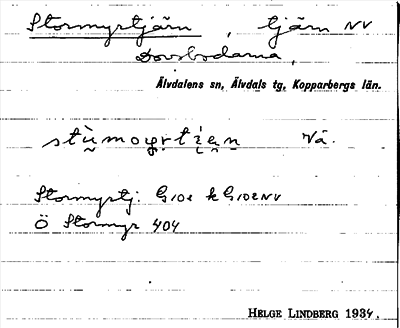 Stormyrtjärn, tjärn NV
Dovsbodarna,
Älvdalens sn, Älvdals tg, Kopparbergs län.
Vå.
Stormyrtj: G10e k G10e NV
Ö Stormyr 404
HELGE LINDBERG 1934.